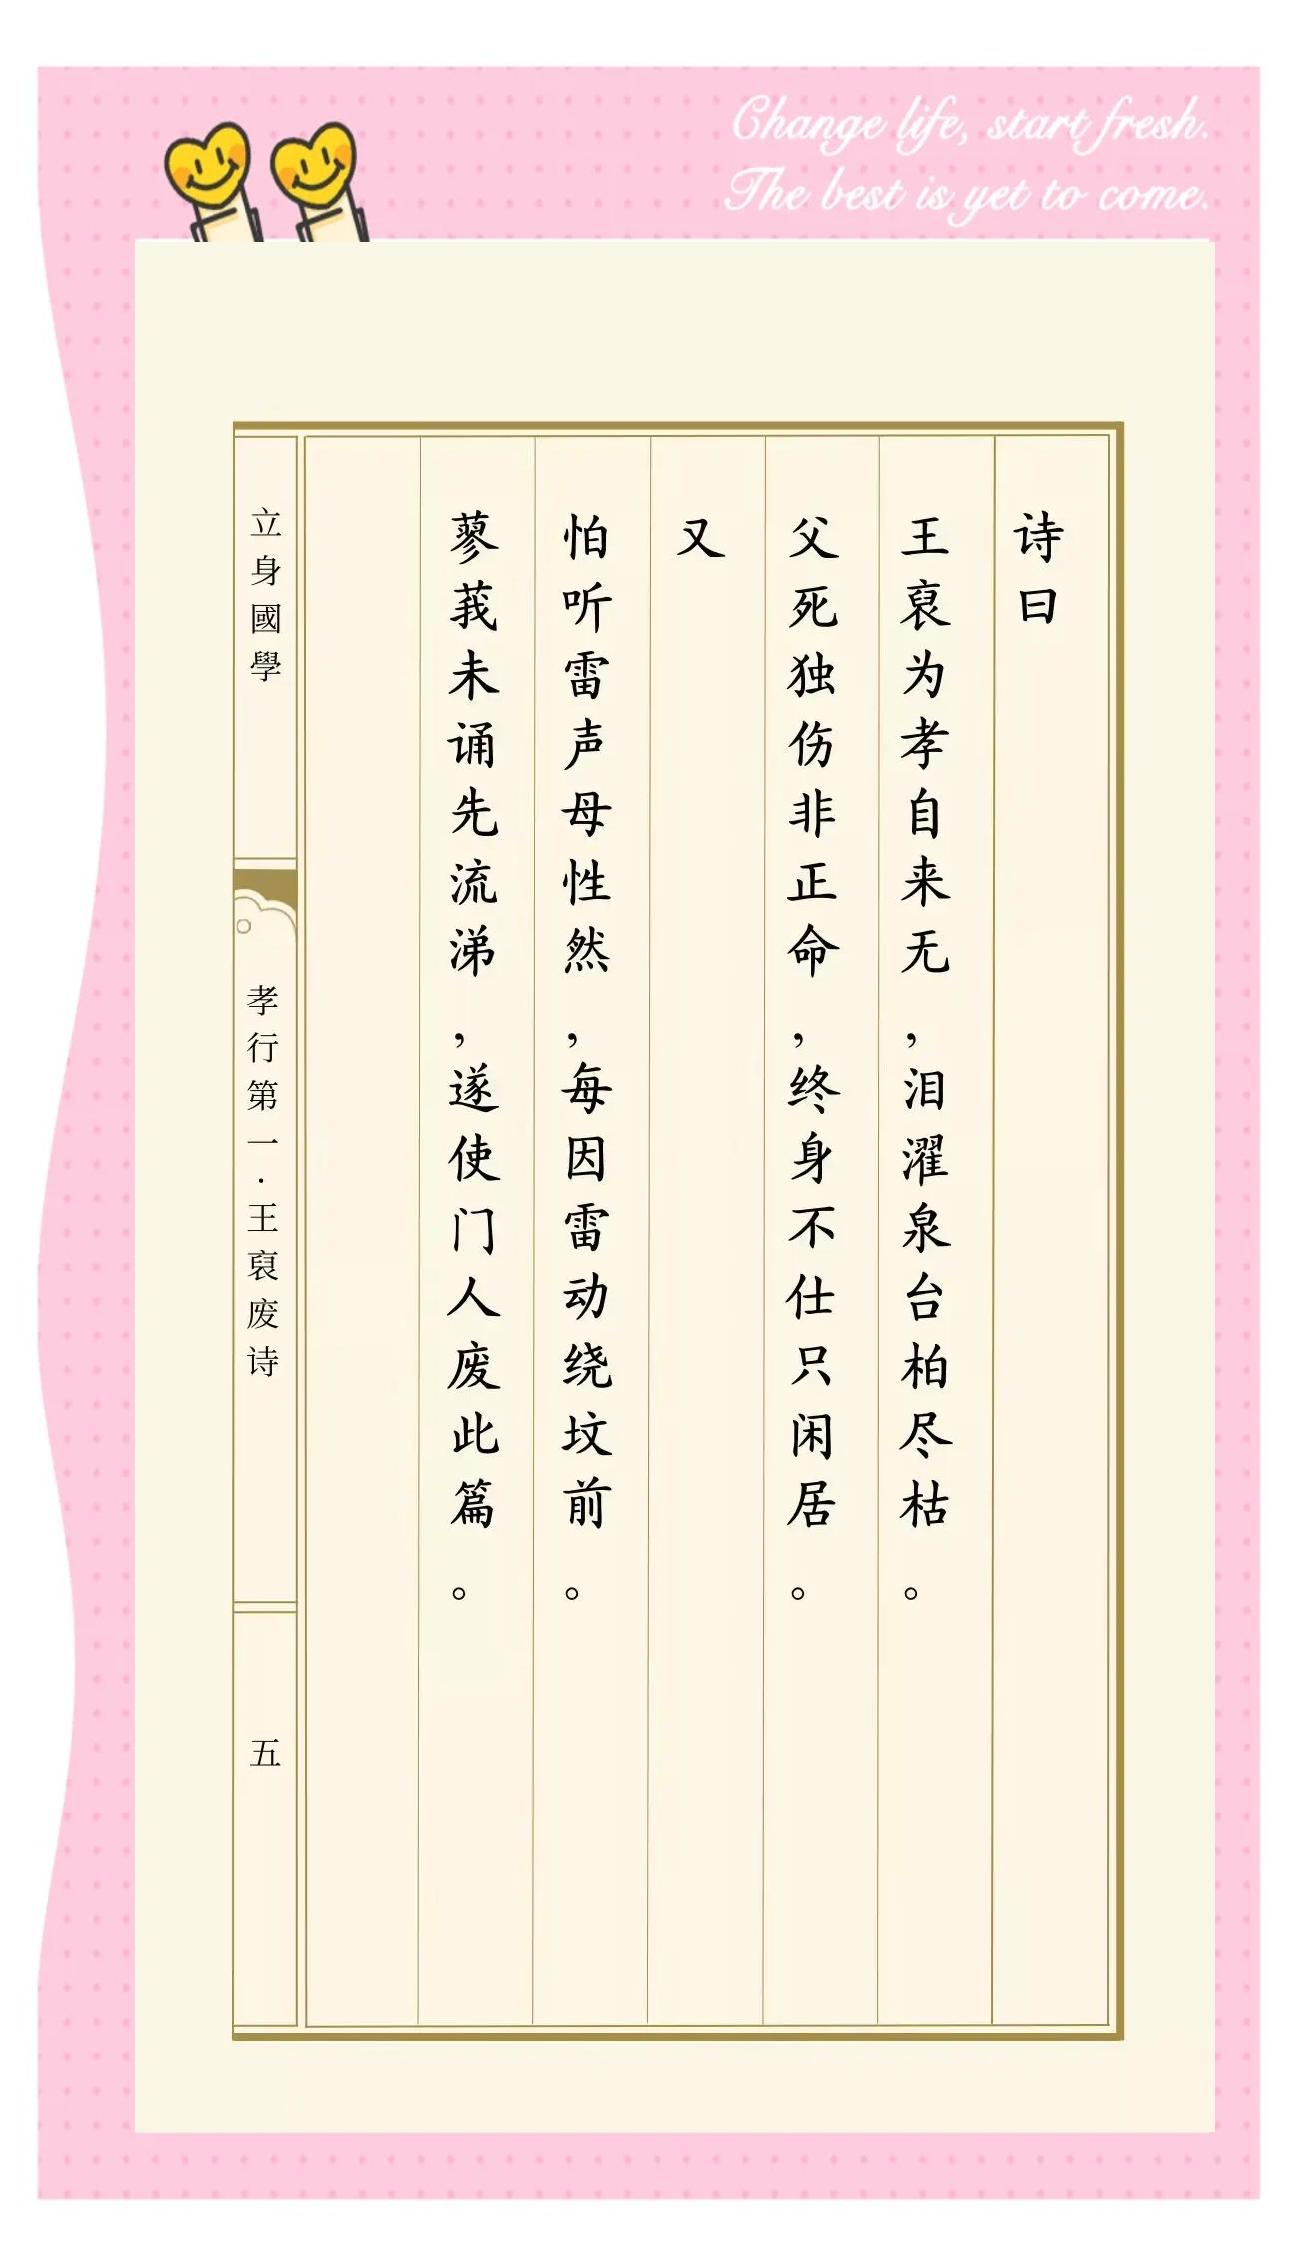 Change life, start fresh.
The best is yet to come.
诗曰
王裒为孝自来无，泪濯泉台柏尽枯。
父死独伤非正命，终身不仕只闲居。
又
怕听雷声母性然，每因雷动绕坟前。
蓼莪未诵先流涕，遂使门人废此篇。
立身國學
孝行第一·王裒废诗
五